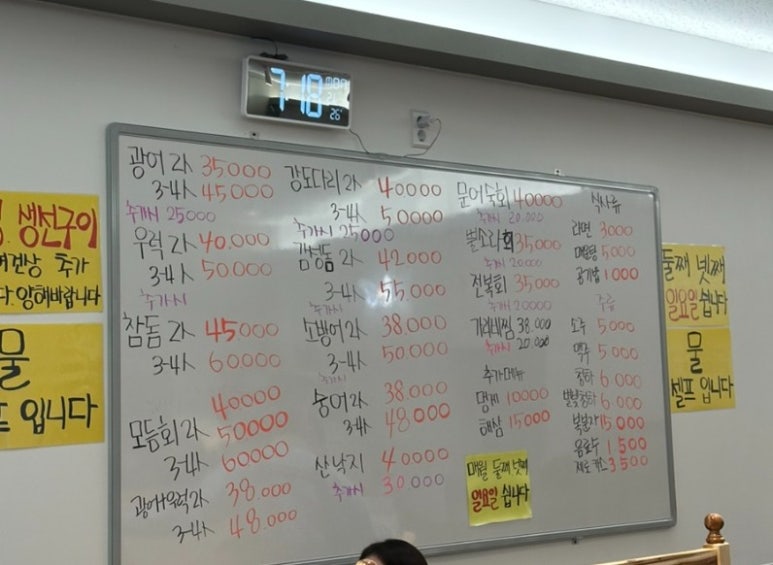 7:18
MON
26
광어 2人 35000
3-4人 45000
추가시 25000
우럭 2人 40.000
3-4人 50000
추가시
참돔 2人 45000
3-4人 60000
40000
모듬회 2人 50000
3-4人 60000
광어+우럭 2人 38.000
3-4人 48.000
강도다리 2人 40000
3-4人 50000
추가시 25000
감성돔 2人 42000
3-4人 55.000
추가시
소방어 2人 38.000
3-4人 50000
추가시
숭어 2人 38.000
3-4人 48.000
산낙지 40000
추가시 30.000
문어숙회 40000
추가시 20.000
뿔소라회 35000
추가시 20.000
전복회 35000
추가시 20000
가리비찜 38.000
추가시 20.000
추가메뉴
멍게 10000
해삼 15000
매월 둘째 넷째
일요일 쉽니다
식사류
라면 3000
매운탕 5000
공기밥 1000
주류
소주 5000
맥주 5000
청하 6.000
별빛청하 6.000
복분자 15.000
음료수 1500
제로콕스 3500
생선구이
추가
양해바랍니다
물
입니다
둘째 넷째
일요일 쉽니다
물
셀프 입니다